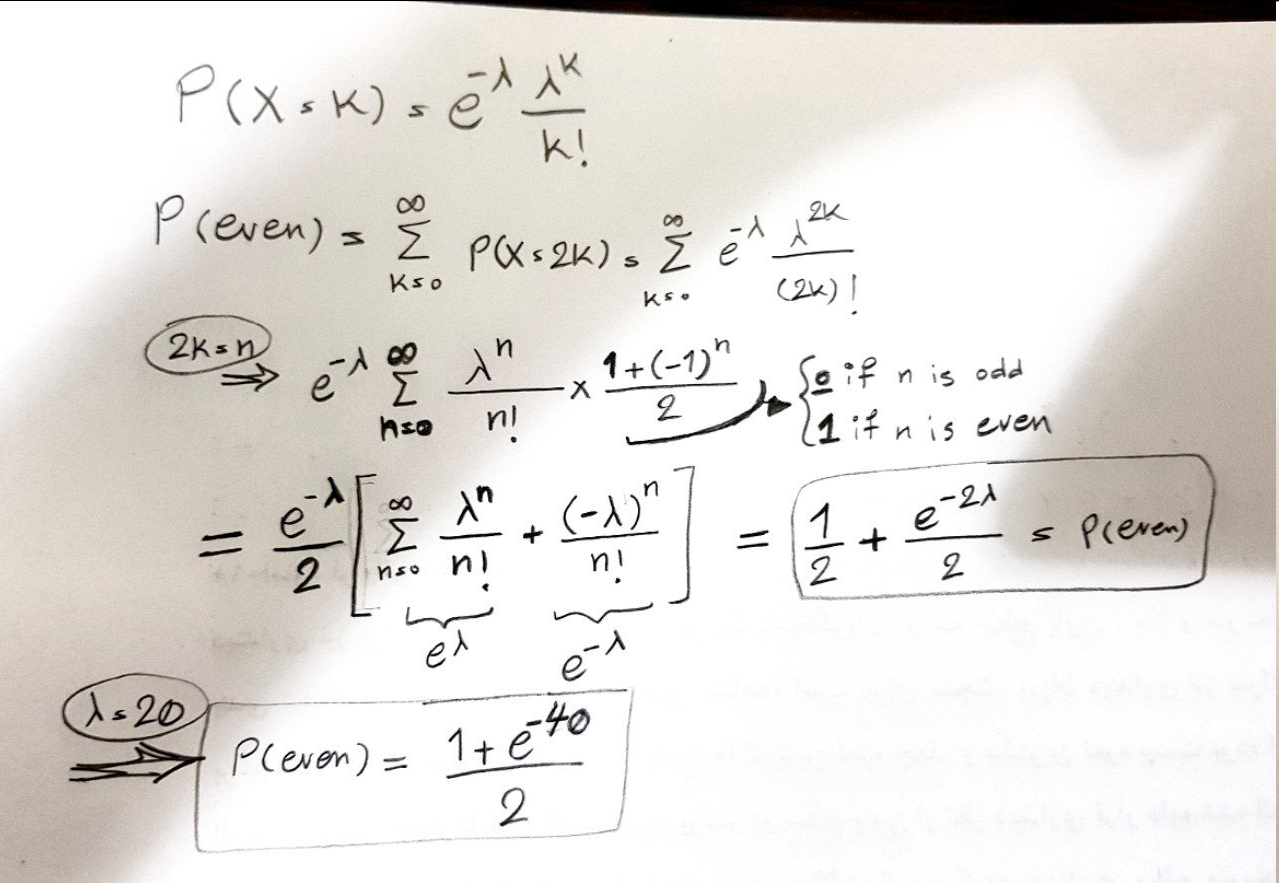 P(X = K) = e^{-λ} \frac{λ^K}{K!}
P(even) = \sum_{K=0}^{∞} P(X = 2K) = \sum_{K=0}^{∞} e^{-λ} \frac{λ^{2K}}{(2K)!}
2K = n ⇒ e^{-λ} \sum_{n=0}^{∞} \frac{λ^n}{n!} × \frac{1+(-1)^n}{2} → { 0 if n is odd
1 if n is even
= \frac{e^{-λ}}{2} [ \sum_{n=0}^{∞} \frac{λ^n}{n!} + \frac{(-λ)^n}{n!} ] = \frac{1}{2} + \frac{e^{-2λ}}{2} = P(even)
e^λ e^{-λ}
λ = 20 ⇒ P(even) = \frac{1+e^{-40}}{2}